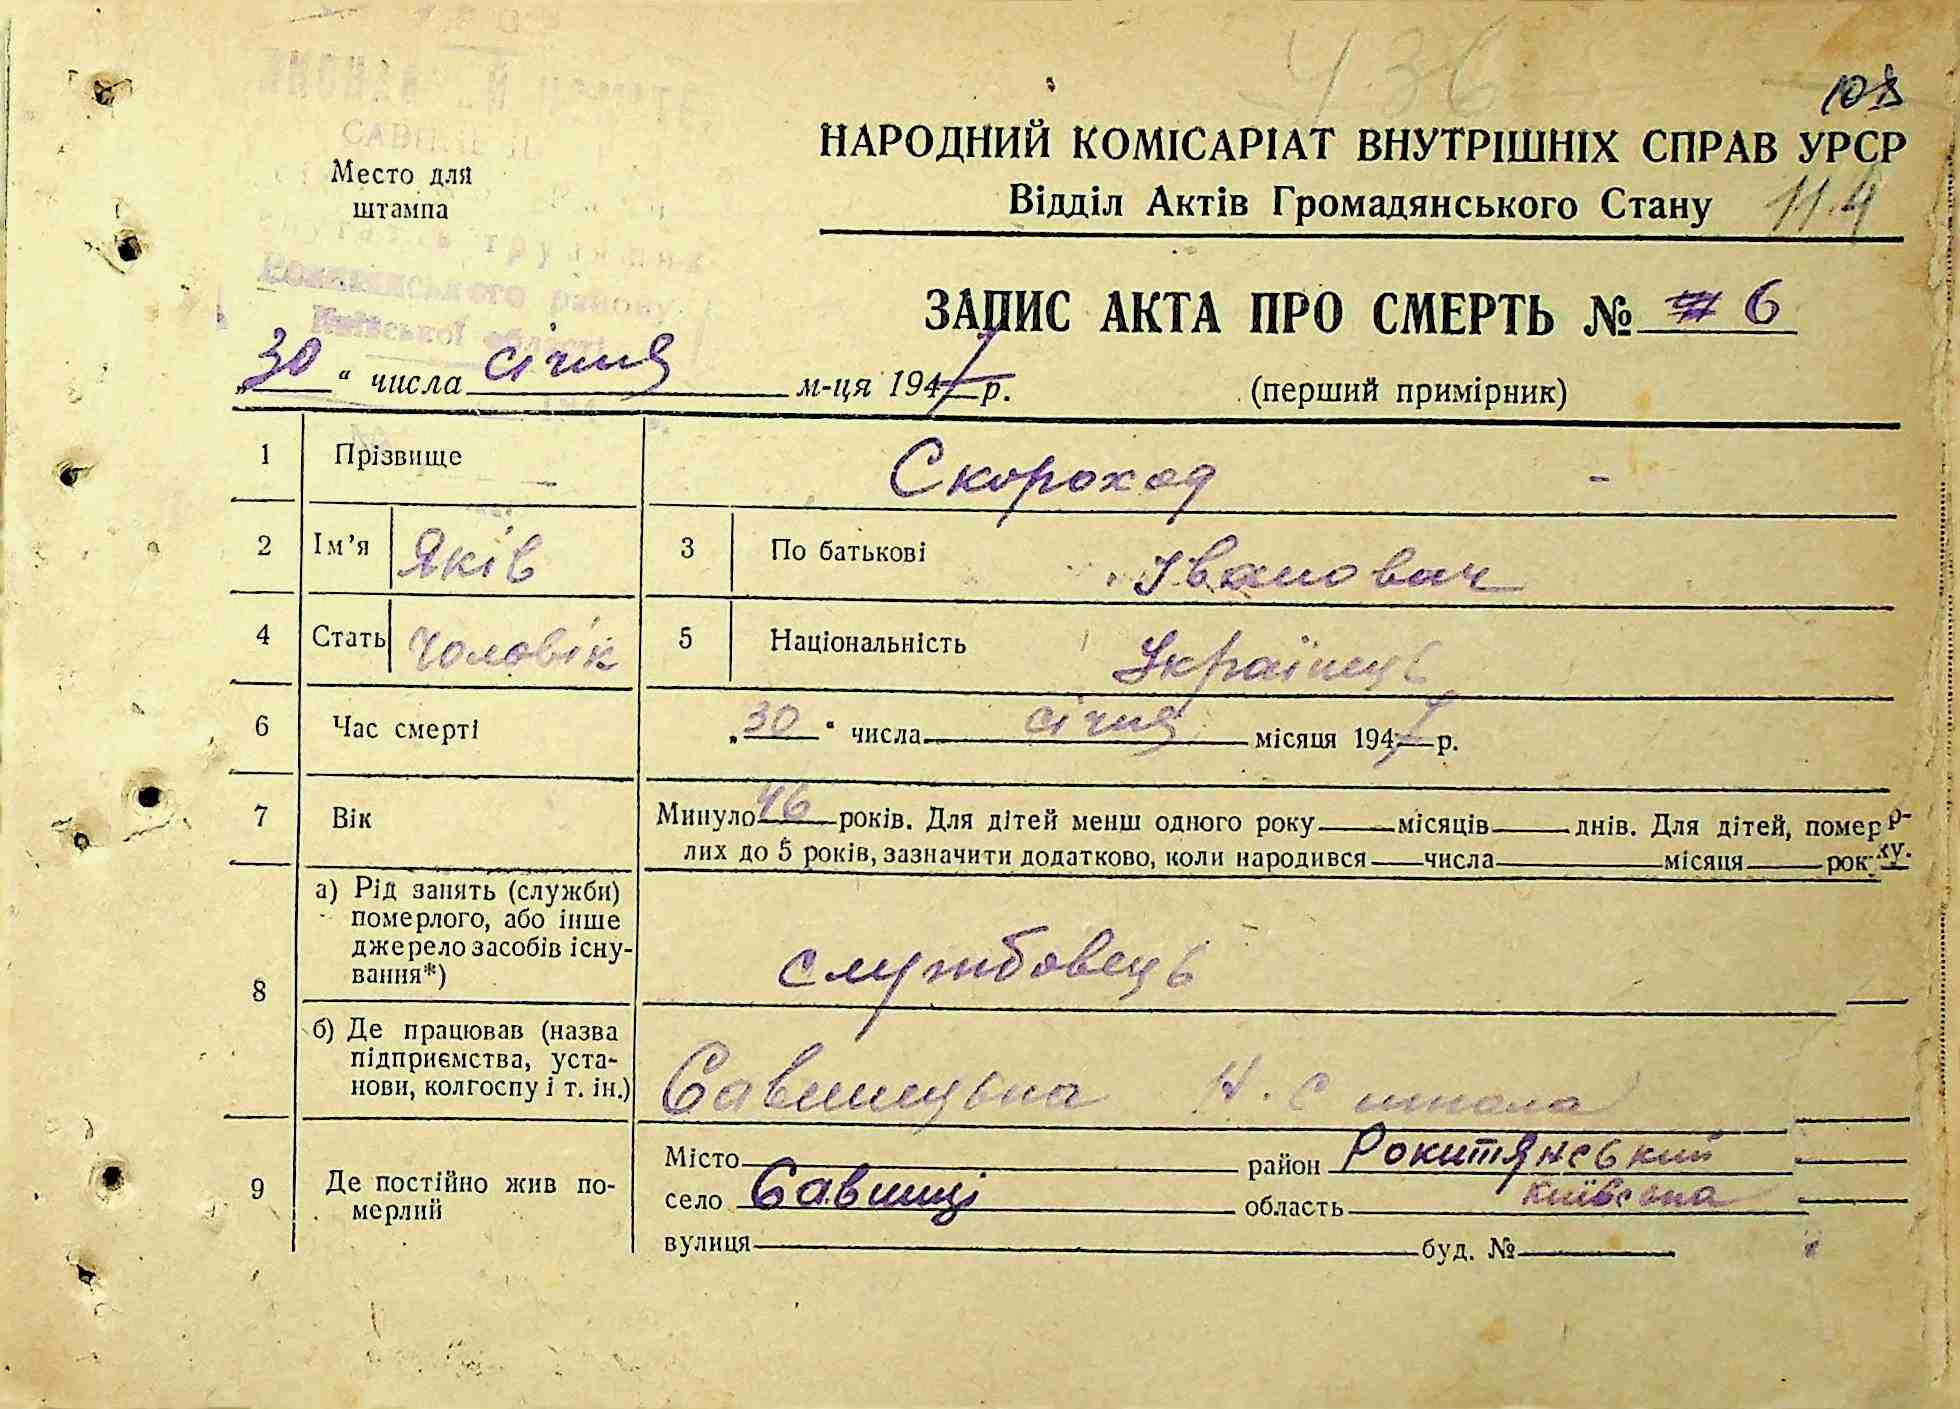 436
108
НАРОДНИЙ КОМІСАРІАТ ВНУТРІШНІХ СПРАВ УРСР
Відділ Актів Громадянського Стану 114
Место для
штампа
району
Київської області
ЗАПИС АКТА ПРО СМЕРТЬ № 6
„30“ числа січня м-ця 1947 р.
(перший примірник)
1 Прізвище Скороход -
2 Ім’я Яків 3 По батькові Іванович
4 Стать Чоловік 5 Національність Українець
6 Час смерті „30“ числа січня місяця 1947 р.
7 Вік Минуло 46 років. Для дітей менш одного року місяців днів. Для дітей, помер-
лих до 5 років, зазначити додатково, коли народився числа місяця року.
8 а) Рід занять (служби)
померлого, або інше
джерело засобів існу-
вання*)
службовець
б) Де працював (назва
підприємства, уста-
нови, колгоспу і т. ін.)
Савинецька Н. С школа
9 Де постійно жив по-
мерлий
Місто район Рокитянський
село Савинці область Київська
вулиця буд. №